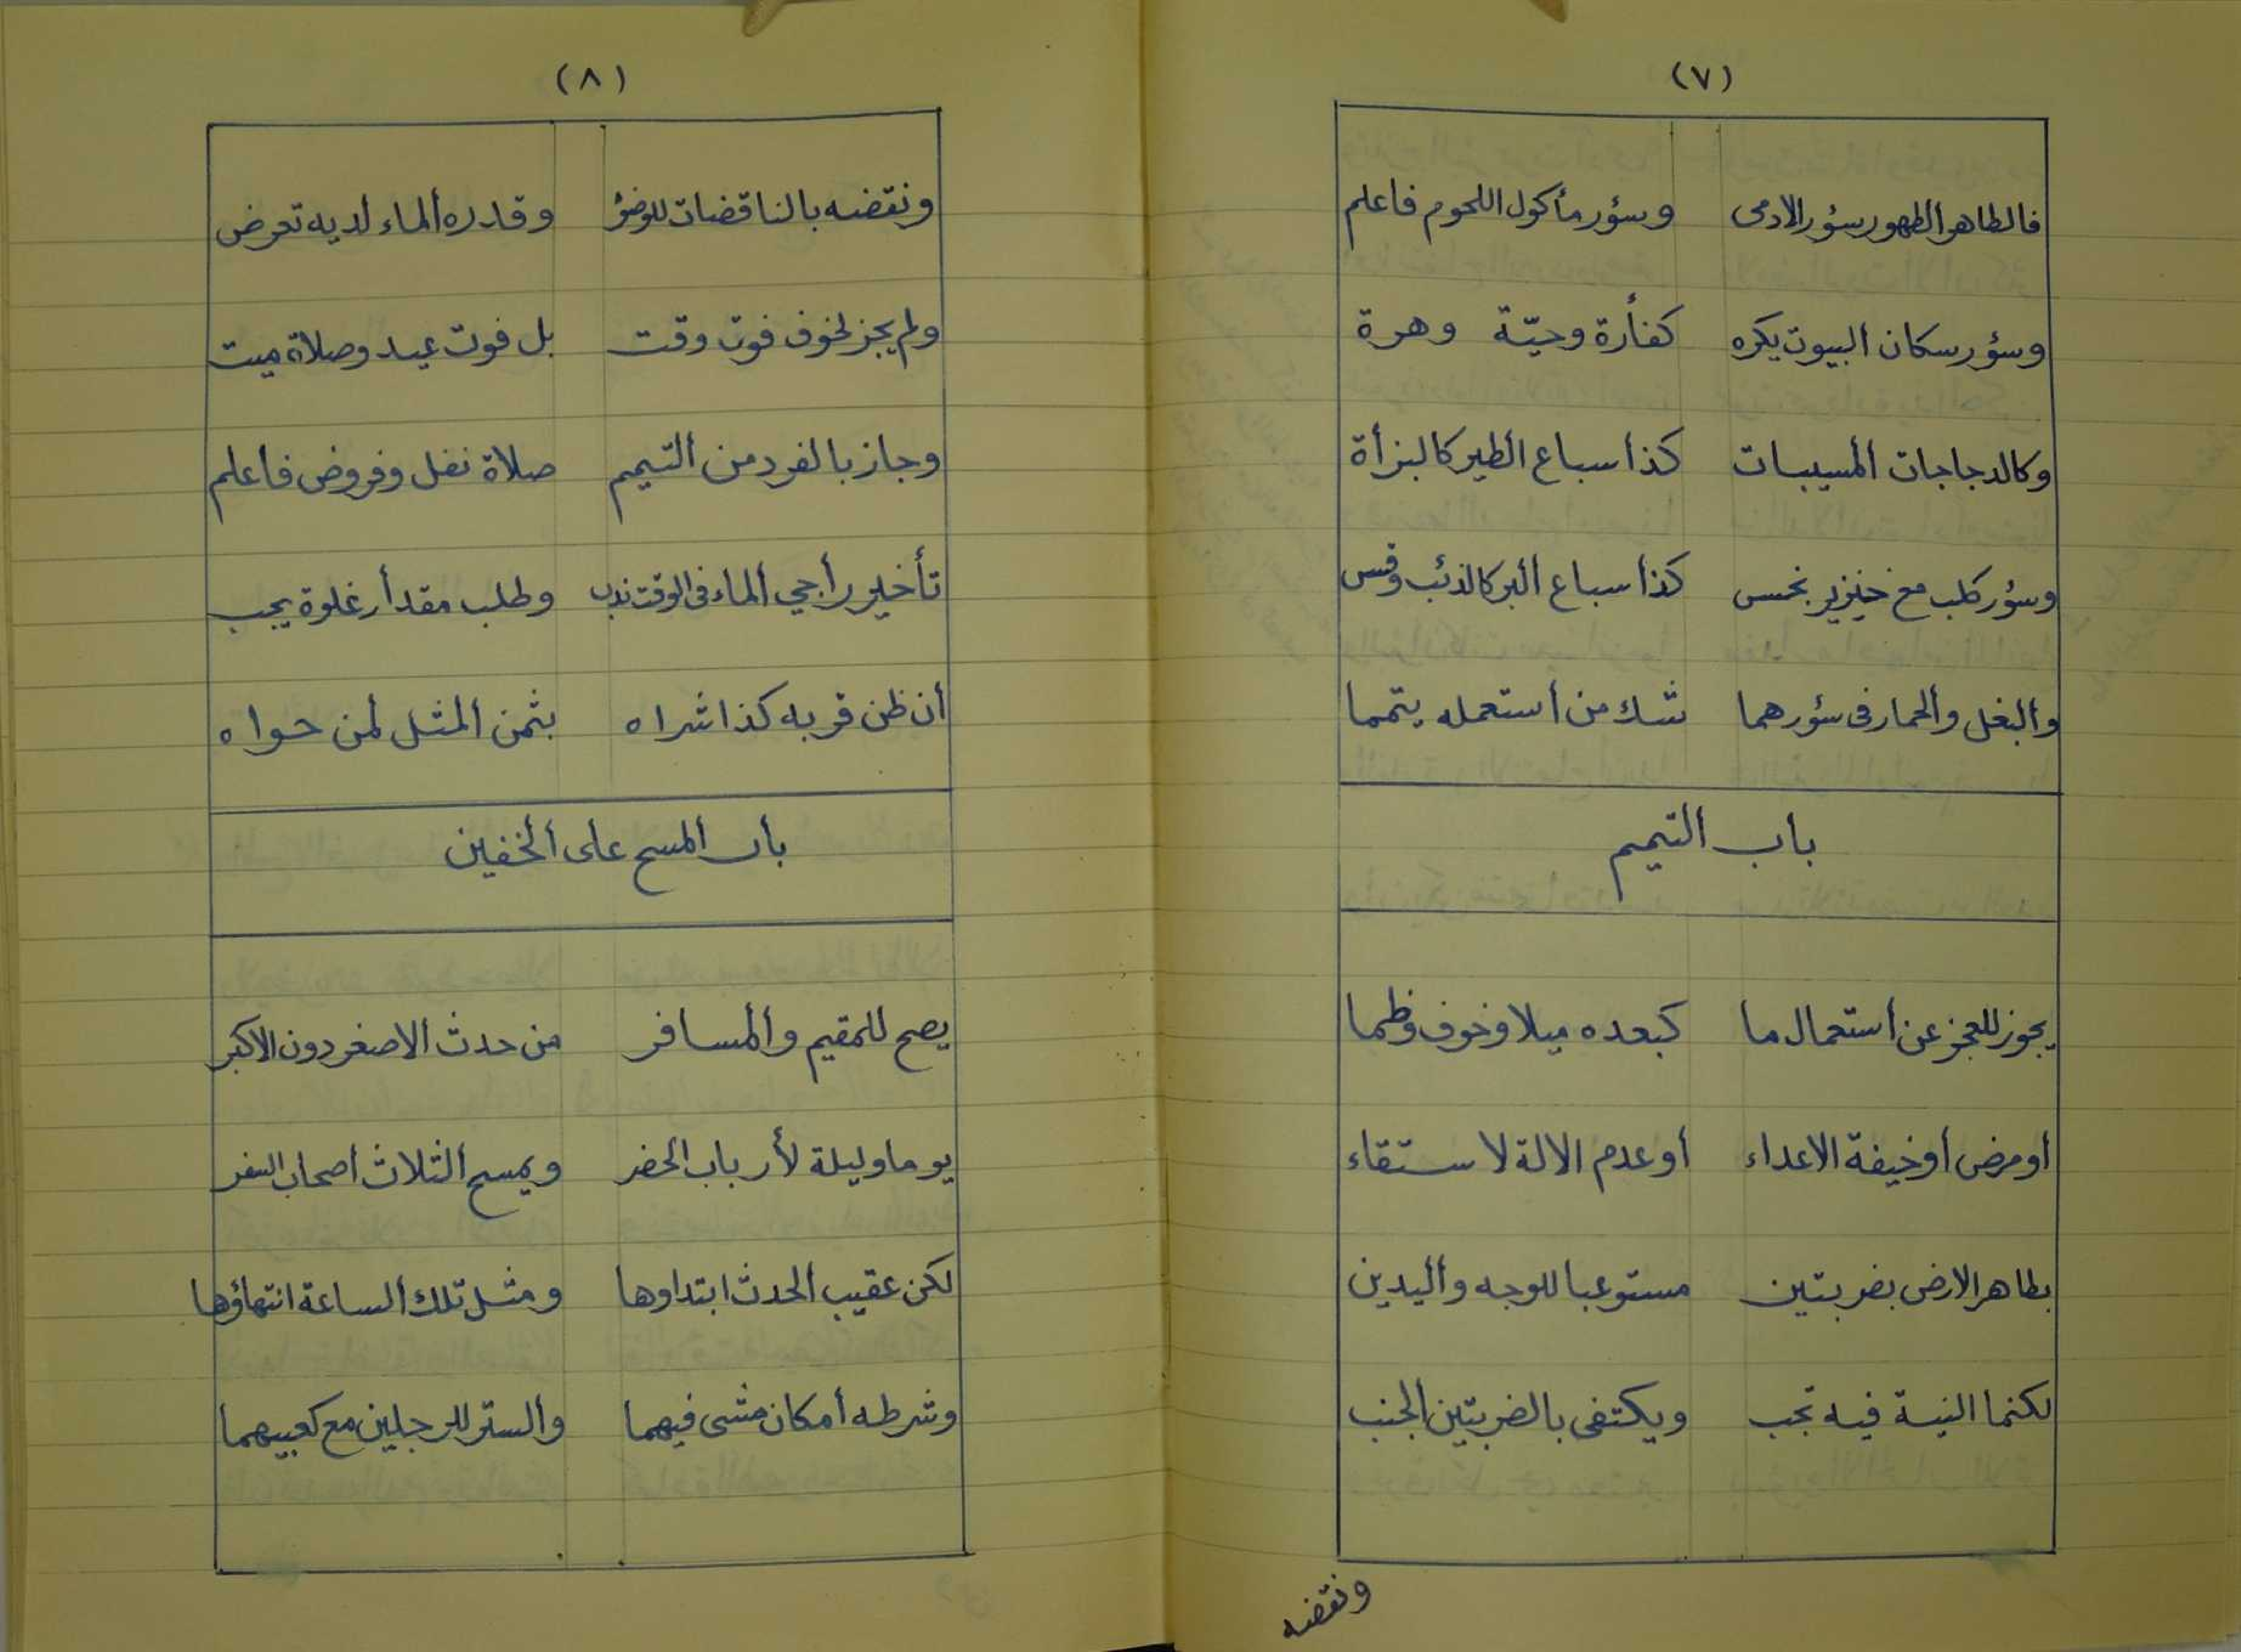 (٧)
فالطاهر ألطهور سؤر الادمى وسؤر مأكول اللحوم فاعلم
وسؤر سكان البيوت يكره كفأرة وحيّة وهرة
وكالدجاجات ألمسيبات كذأ سباع ألطير كالبزأة
وسؤر كلب مع خنزير نجس كذأ سباع ألبر كالذئب وقس
وألبغل وألحمار فى سؤرهما شك من أستعمله يتمما
باب ألتيمم
يجوز للعجز عن أستعمال ما كبعده ميلا وخوف وظما
أو مرض أو خيفة الاعداء أو عدم الالة لاستقاء
بطاهر الارض بضربتين مستوعبا للوجه وأليدين
لكنما النية فيه تجب ويكتفى بالضربتين ألجنب
ونقضه
(٨)
ونقضه بالناقضات للوضؤ وقدره ألماء لديه تعرض
ولم يجز لخوف فوت وقت بل فوت عيد وصلاة ميت
وجاز بالفرد من ألتيمم صلاة نفل وفروض فأعلم
تأخير رأجي ألماء فى الوقت ندب وطلب مقدأر غلوة يجب
أن ظن قربه كذا شراه بثمن ألمثل لمن حواه
بأب ألمسح على ألخفين
يصح للمقيم وألمسافر من حدث ألاصغر دون الاكبر
يوما وليلة لأرباب الحضر ويمسح ألثلاث أصحاب السفر
لكن عقيب ألحدث ابتداوها ومثل تلك ألساعة انتهاؤها
وشرطه أمكان مشى فيهما وألستر للرجلين مع كعبيهما